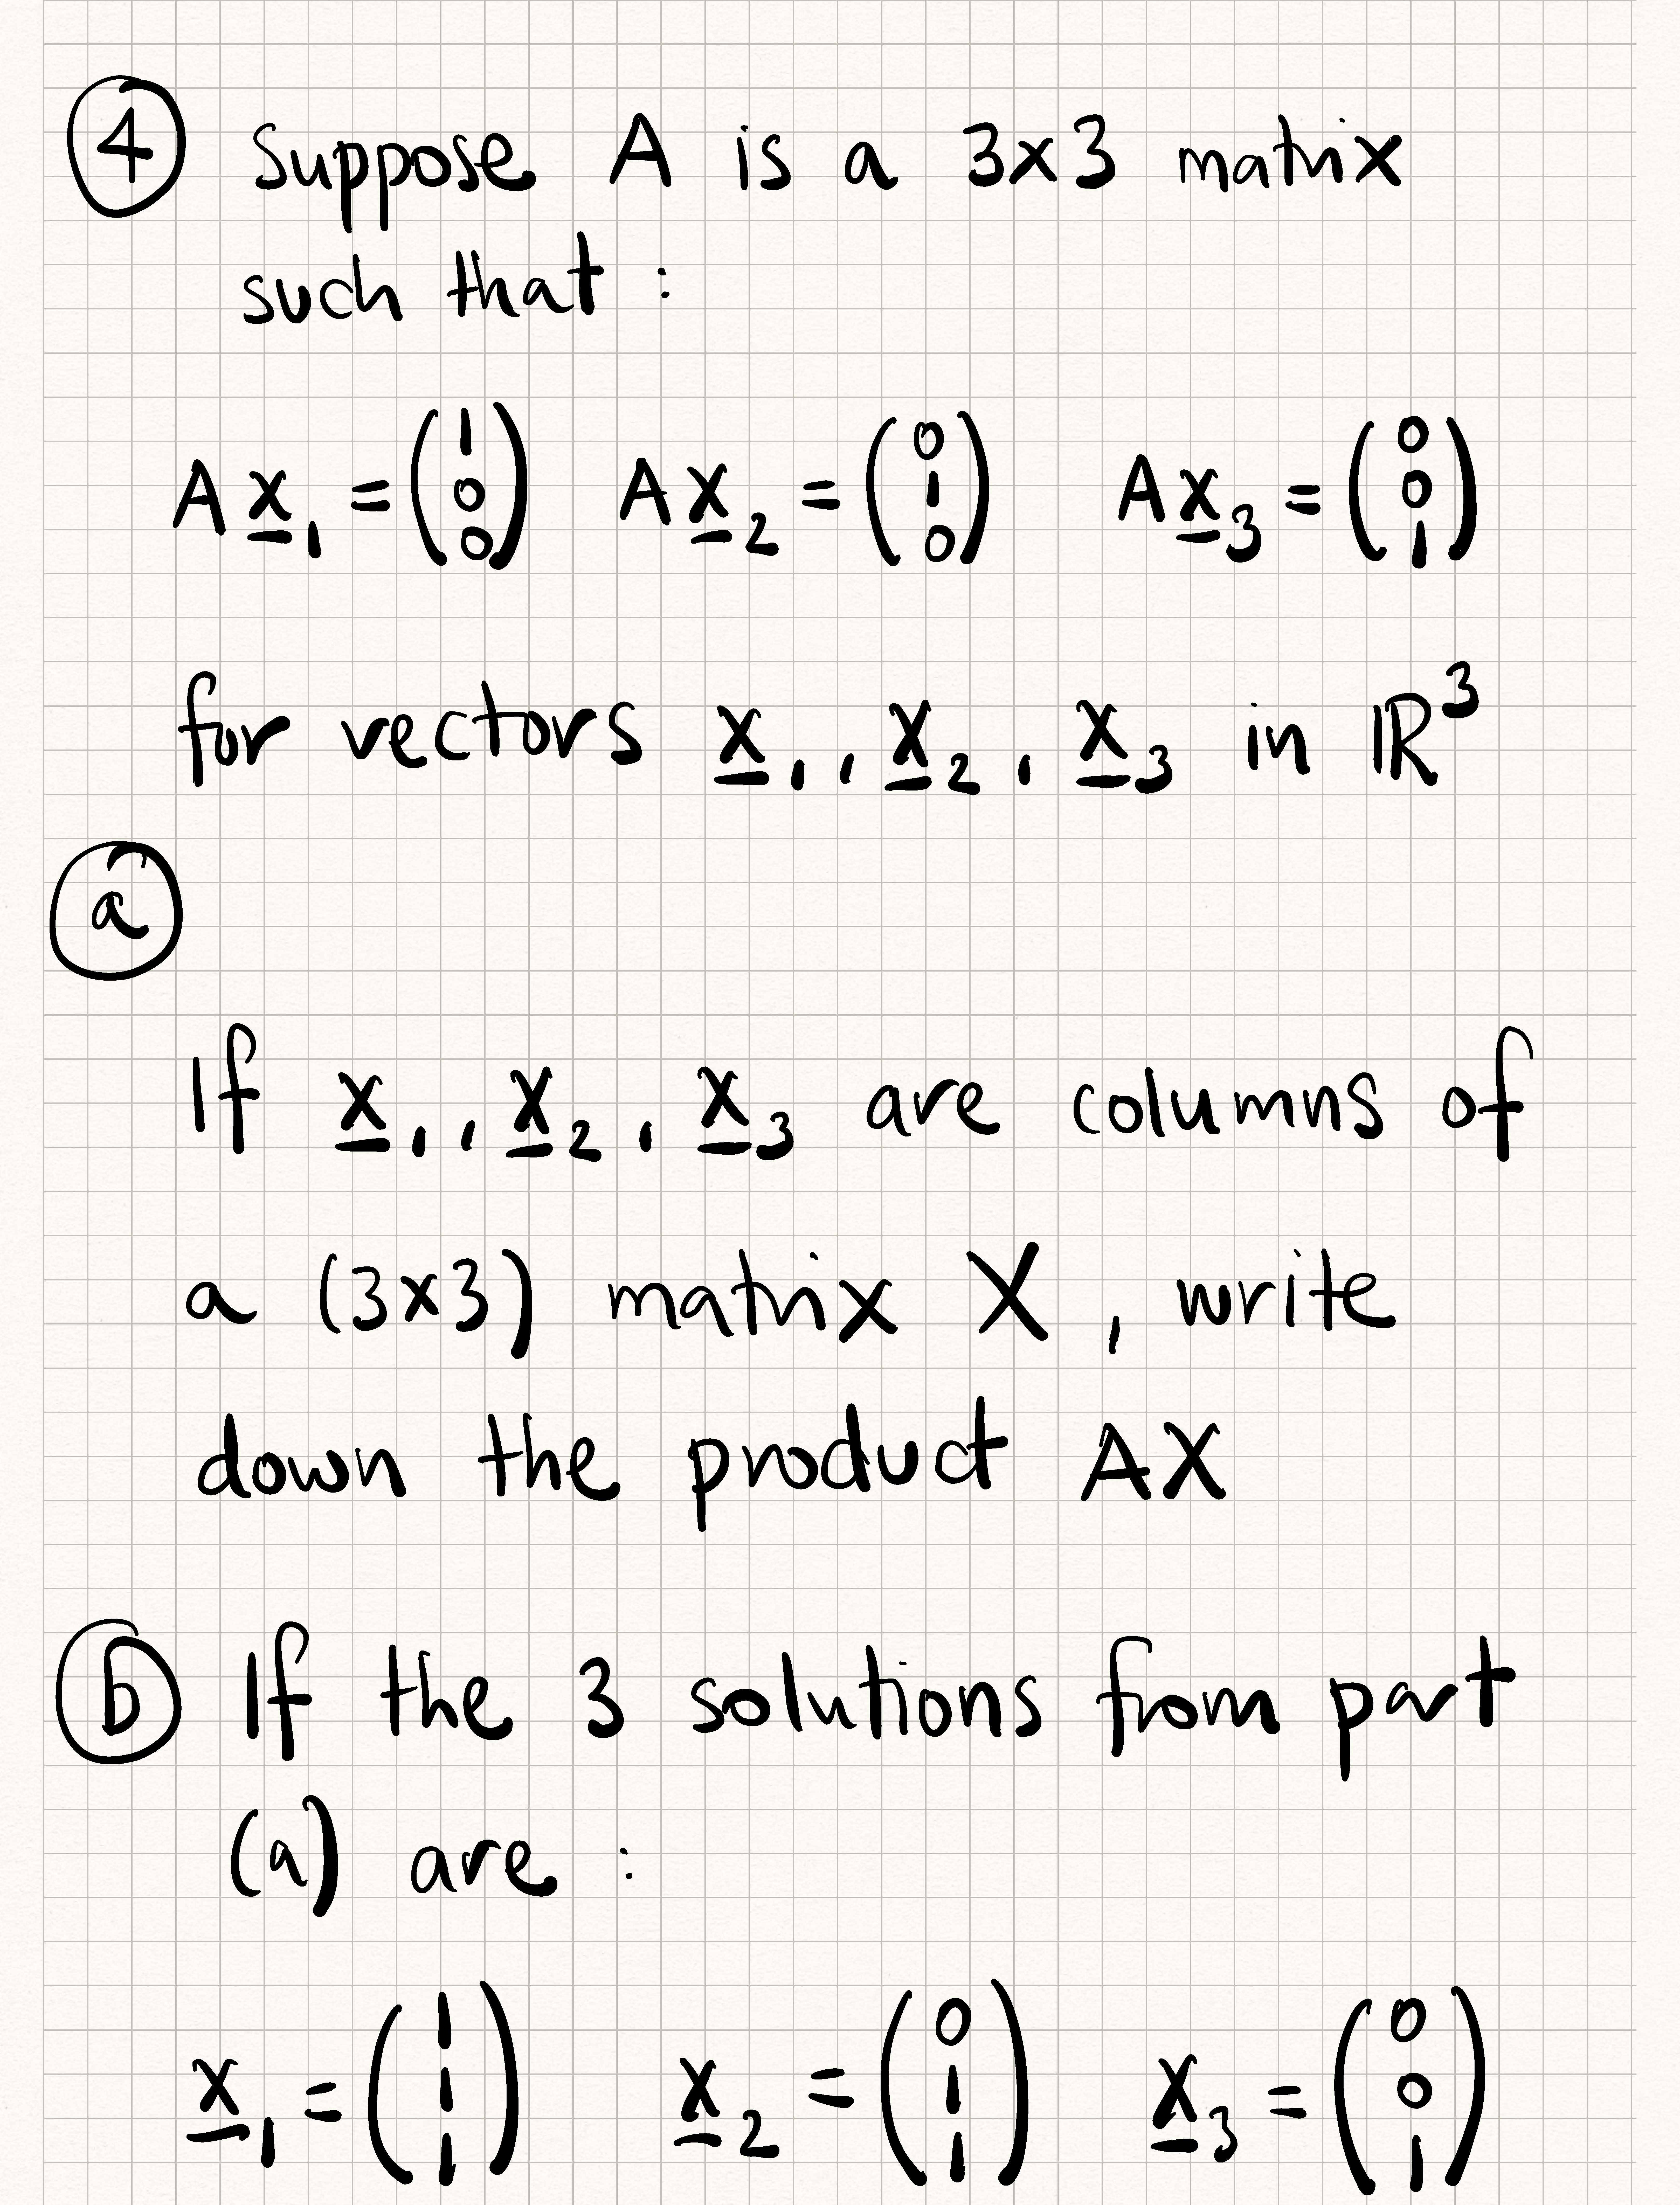 ④ Suppose A is a 3x3 matrix
such that :
A x̲₁ = (1 0 0) A x̲₂ = (0 1 0) A x̲₃ = (0 0 1)
for vectors x̲₁, x̲₂, x̲₃ in ℝ³
ⓐ
If x̲₁, x̲₂, x̲₃ are columns of
a (3x3) matrix X, write
down the product AX
ⓑ If the 3 solutions from part
(a) are :
x̲₁ = (1 1 1) x̲₂ = (0 1 1) x̲₃ = (0 0 1)